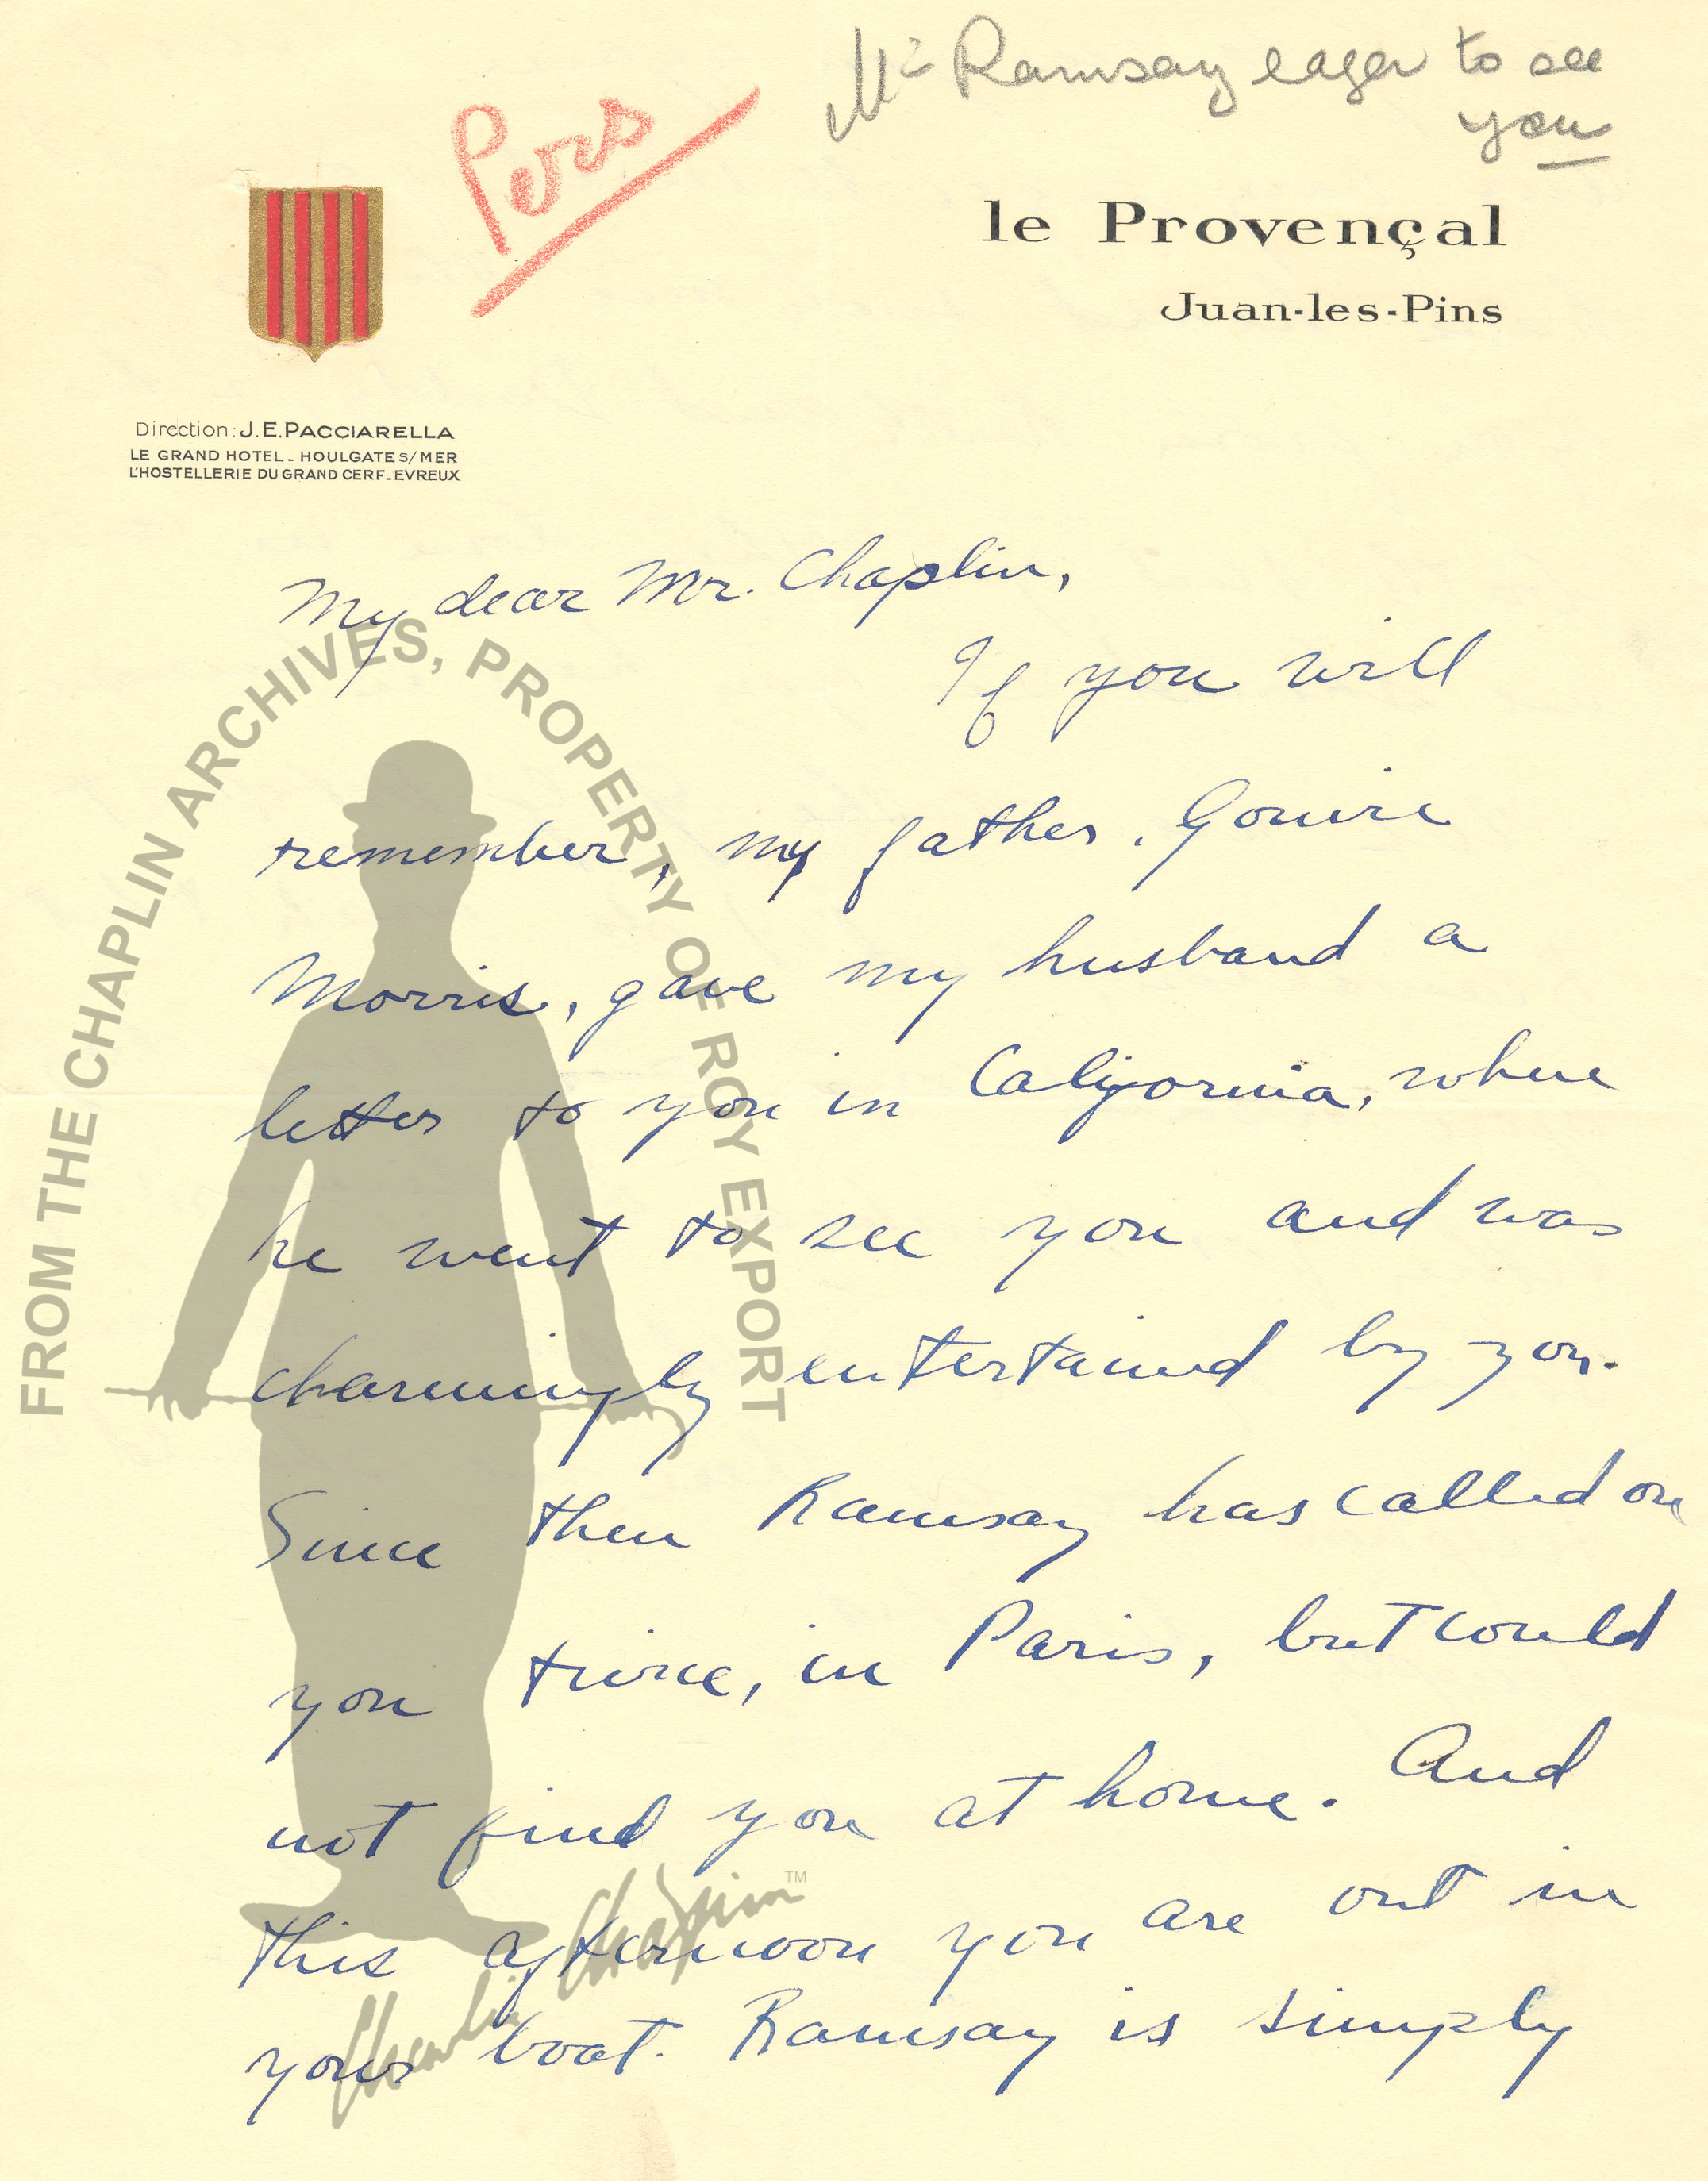 Mr Ramsay eager to see
you
Pers
le Provençal
Juan-les-Pins
Direction: J.E. PACCIARELLA
LE GRAND HOTEL - HOULGATE S/MER
L'HOSTELLERIE DU GRAND CERF - EVREUX
My dear Mr. Chaplin,
If you will
remember, my father, Gouvir
Morris, gave my husband a
letter to you in California, where
he went to see you and was
charmingly entertained by you.
Since then Ramsay has called on
you twice, in Paris, but could
not find you at home. And
this afternoon you are out in
your boat. Ramsay is simply
FROM THE CHAPLIN ARCHIVES, PROPERTY OF ROY EXPORT
Charlie Chaplin™